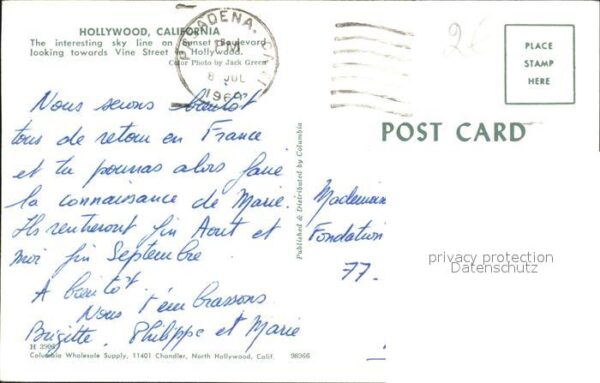 HOLLYWOOD, CALIFORNIA
The interesting sky line on Sunset Boulevard
looking towards Vine Street in Hollywood.
Color Photo by Jack Green
PASADENA, CALIF
PM
8 JUL
196
26
PLACE
STAMP
HERE
POST CARD
Nous serons bientôt
tous de retour en France
et tu pourras alors faire
la connaissance de Marie.
Ils rentreront fin Aout et
moi fin Septembre.
A bientôt.
Nous t'embrassons
Brigitte, Philippe et Marie
Published & Distributed by Columbia
Mademoise
Fondation
77.
privacy protection
Datenschutz
Columbia Wholesale Supply, 11401 Chandler, North Hollywood, Calif.
98966